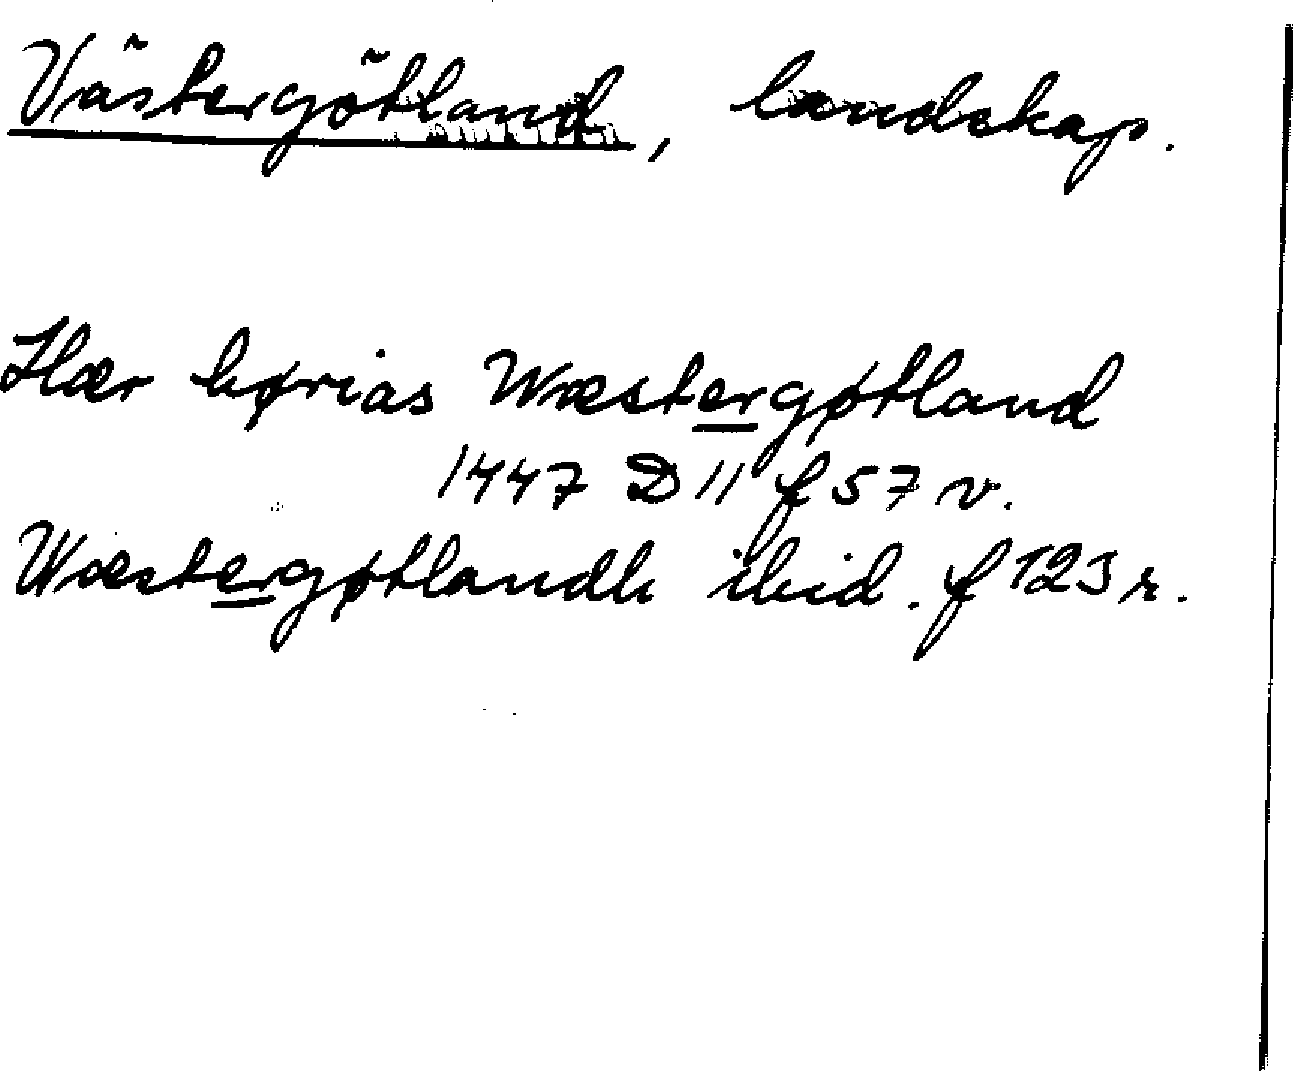 Västergötland, landskap.
Hær børias Wæstergøtland
1447 D 11 f 57 v.
Wæstergøtlandh ibid. f 123 r.